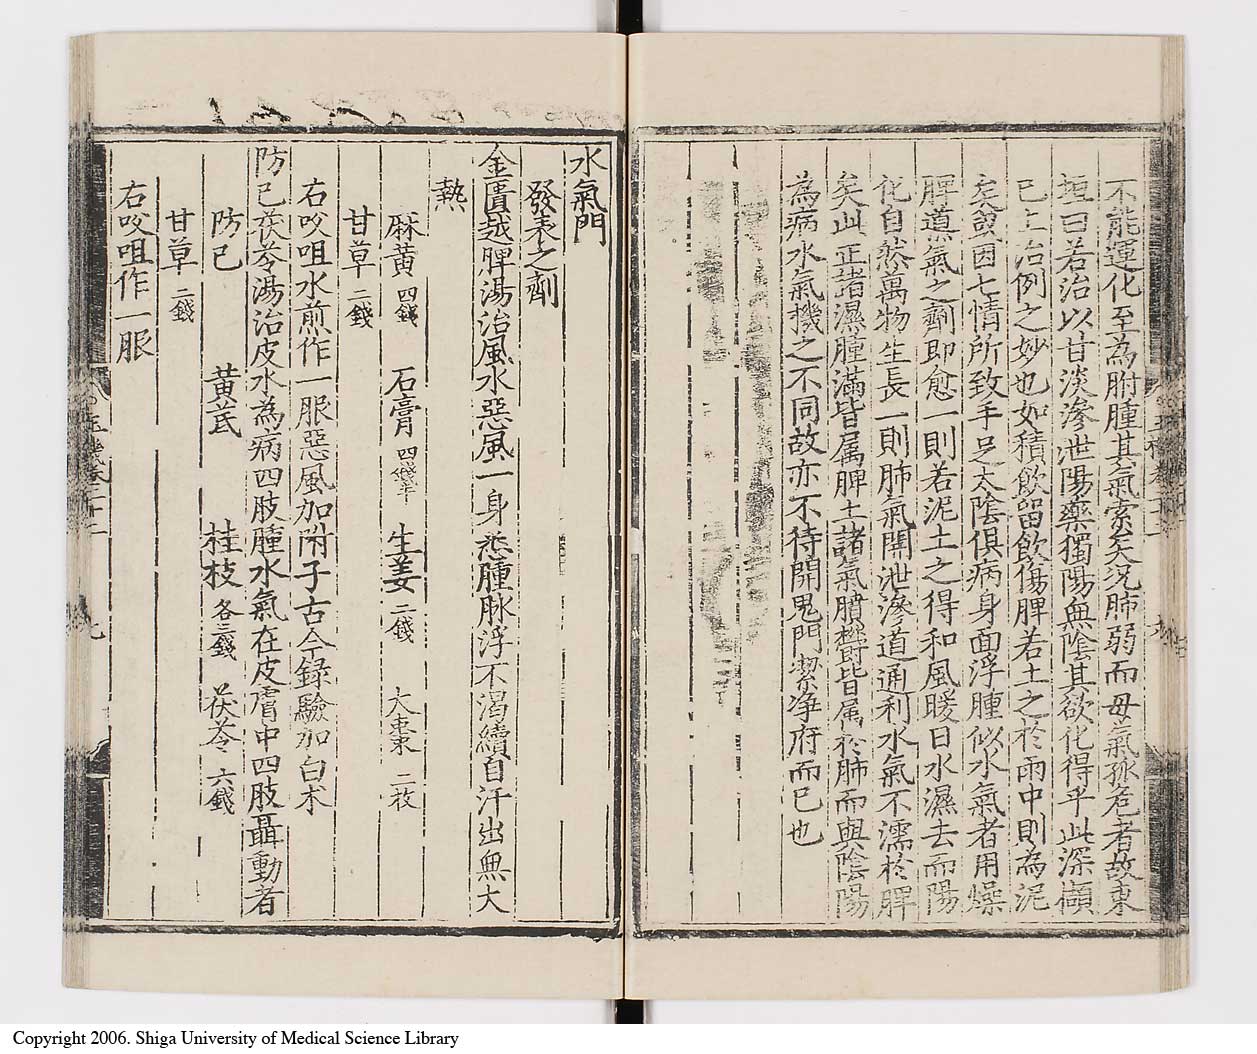 不能運化至為胕腫其氣索矣况肺弱而母氣孤危者故東
垣曰若治以甘淡滲泄陽藥獨陽無陰其欲化得乎此深穎
已上治例之妙也如積飲留飲傷脾若土之於雨中則為泥
矣設因七情所致手足太陰俱病身面浮腫似水氣者用燥
脾導氣之劑即愈一則若泥土之得和風暖日水濕去而陽
化自然萬物生長一則肺氣開泄滲道通利水氣不濡於脾
矣此正諸濕腫滿皆属脾土諸氣膹欝皆属於肺而與陰陽
為病水氣機之不同故亦不待開鬼門潔净府而已也
水氣門
發表之劑
金匱越脾湯治風水惡風一身悉腫脉浮不渴續自汗出無大
熱
麻黄四錢 石膏四錢半 生姜二錢 大棗二枚
甘草二錢
右㕮咀水煎作一服惡風加附子古今録驗加白术
防已茯苓湯治皮水為病四肢腫水氣在皮膚中四肢聶動者
防已 黄芪 桂枝各三錢 茯苓六錢
甘草二錢
右㕮咀作一服
玉機卷二十二
九
Copyright 2006. Shiga University of Medical Science Library